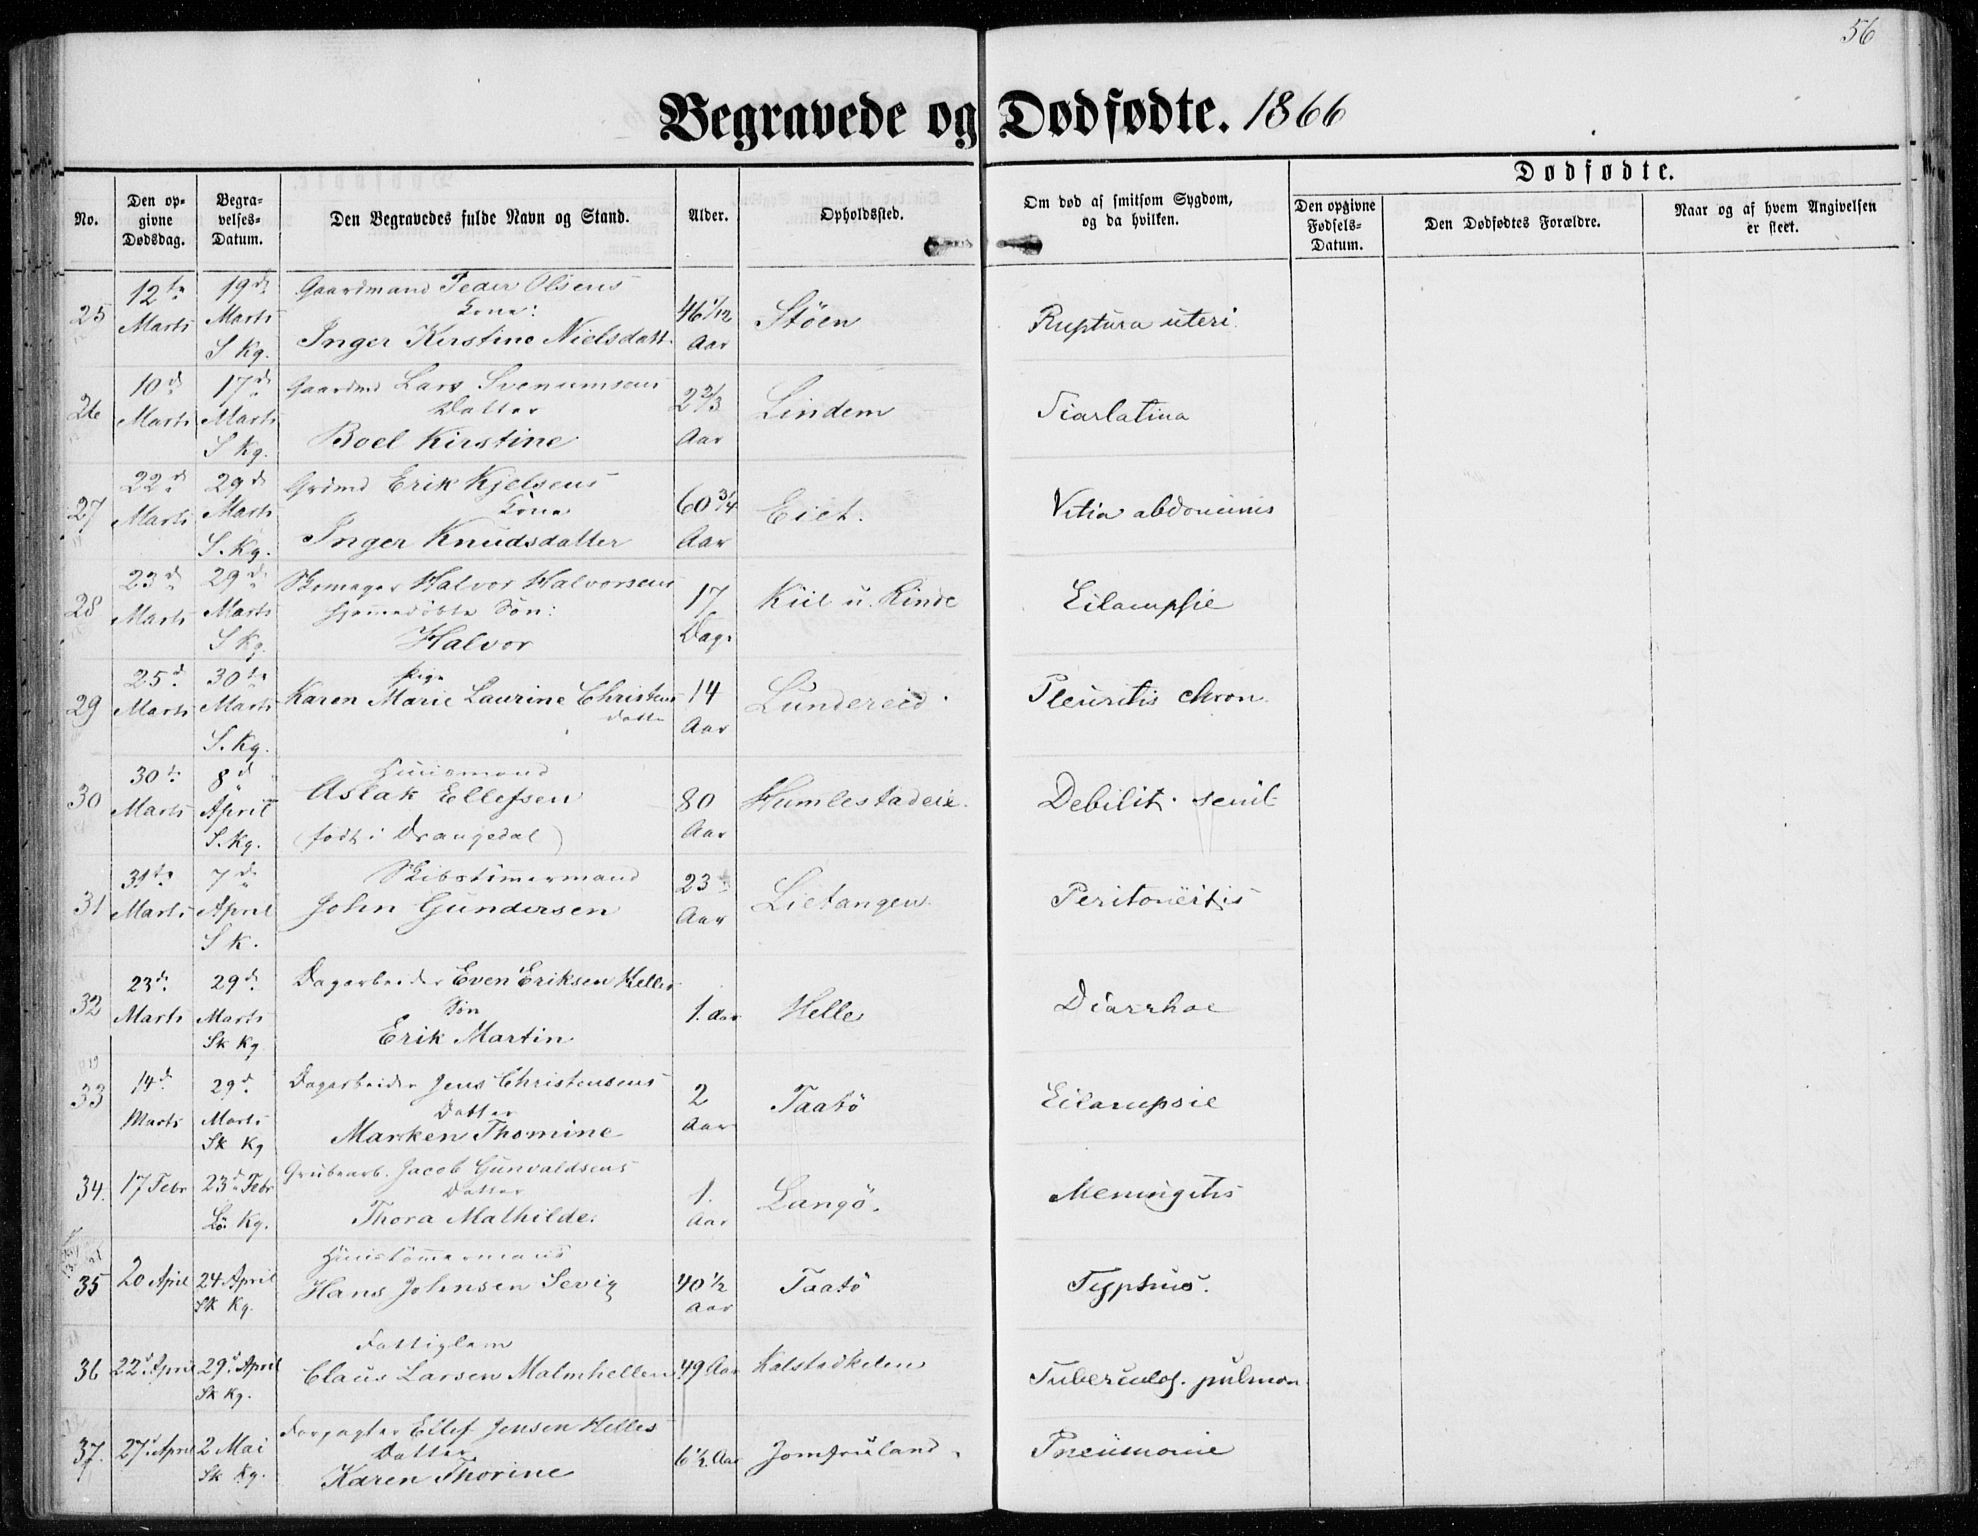 56
Begravede og Dødfødte. 1866
No.
Den op-
givne
Dødsdag.
Begra-
velses-
Datum.
Den Begravedes fulde Navn og Stand.
Alder.
Opholdssted.
Om død af smitsom Sygdom,
og da hvilken.
Dødfødte.
Den opgivne
Fødsels-
Datum.
Den Dødfødtes Forældre.
Naar og af hvem Angivelsen
er skeet.
25
12te
Marts
19de
Marts
S Kg.
Gaardmand Peder Olsens
Kone:
Inger Kirstine Nielsdatt.
46 1/12
Aar
Stöen
Ruptura uteri.
26
10d
Marts
17d
Marts
S Kg.
Gaardmd Lars Svenumsens
Datter
Boel Kirstine
2 2/3
Aar
Lindem
Scarlatina
27
22d
Marts
29d
Marts
S. Kg.
Grdmd Erik Kjelsens
Kone
Inger Knudsdatter
60 3/4
Aar
Eiet.
Vitia abdominis
28
23d
Marts
29d
Marts
S Kg.
Skomager Halvor Halvorsens
hjemmedöbte Sön:
Halvor
17
Dage
Kiil u. Rinde
Eclampsie
29
25d
Marts
30te
Marts
S. Kg.
Pige
Karen Marie Laurine Christens
datter
14
Aar
Lundereid
Pleuritis chron.
30
30te
Marts
8d
April
S. Kg.
Huusmand
Aslak Ellefsen
(födt i Drangedal)
80
Aar
Humlestadeie.
Debilit. senil
31
31te
Marts
7d
April
S K.
Skibstömmermand
John Gundersen
23
Aar
Lietangen.
Peritoneitis
32
23d
Marts
29d
Marts
Sk Kg
Dagarbeider Even Eriksen Helles
Sön
Erik Martin
1. Aar
Helle
Diarrhoe
33
14d
Marts
29d
Marts
Sk Kg
Dagarbeider Jens Christensens
Datter
Marken Thomine
2
Aar
Taatö
Eclampsie
34.
17 Febr
23d Febr
Lö. Kg.
Grubearb. Jacob Gunvaldsens
Datter
Thora Mathilde.
1.
Aar
Langö.
Meningitis
35
20 April
24 April
Sk Kg.
Huustömmermand
Hans Johnsen Sevig
40 1/2
Aar
Taatö
Typhus.
36
22d April
29d April
Sk Kg.
Fattiglem
Claus Larsen Malmhellen
49 Aar
Kalstadkilen
Tuberculos. pulmon.
37.
27d April
2 Mai
Sk Kg.
Forpagter Ellef Jensen Helles
Datter
Karen Thorine
6 1/2 Aar
Jomfruland.
Pneumonie